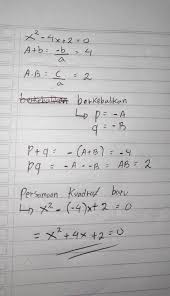 x² - 4x + 2 = 0
A+b = -b/a = 4
A.B = c/a = 2
berkebalikan berkebalikan
↳ p = -A
q = -B
p + q = -(A+B) = -4
pq = -A . -B = AB = 2
Persamaan Kuadrat baru
↳ x² - (-4)x + 2 = 0
= x² + 4x + 2 = 0